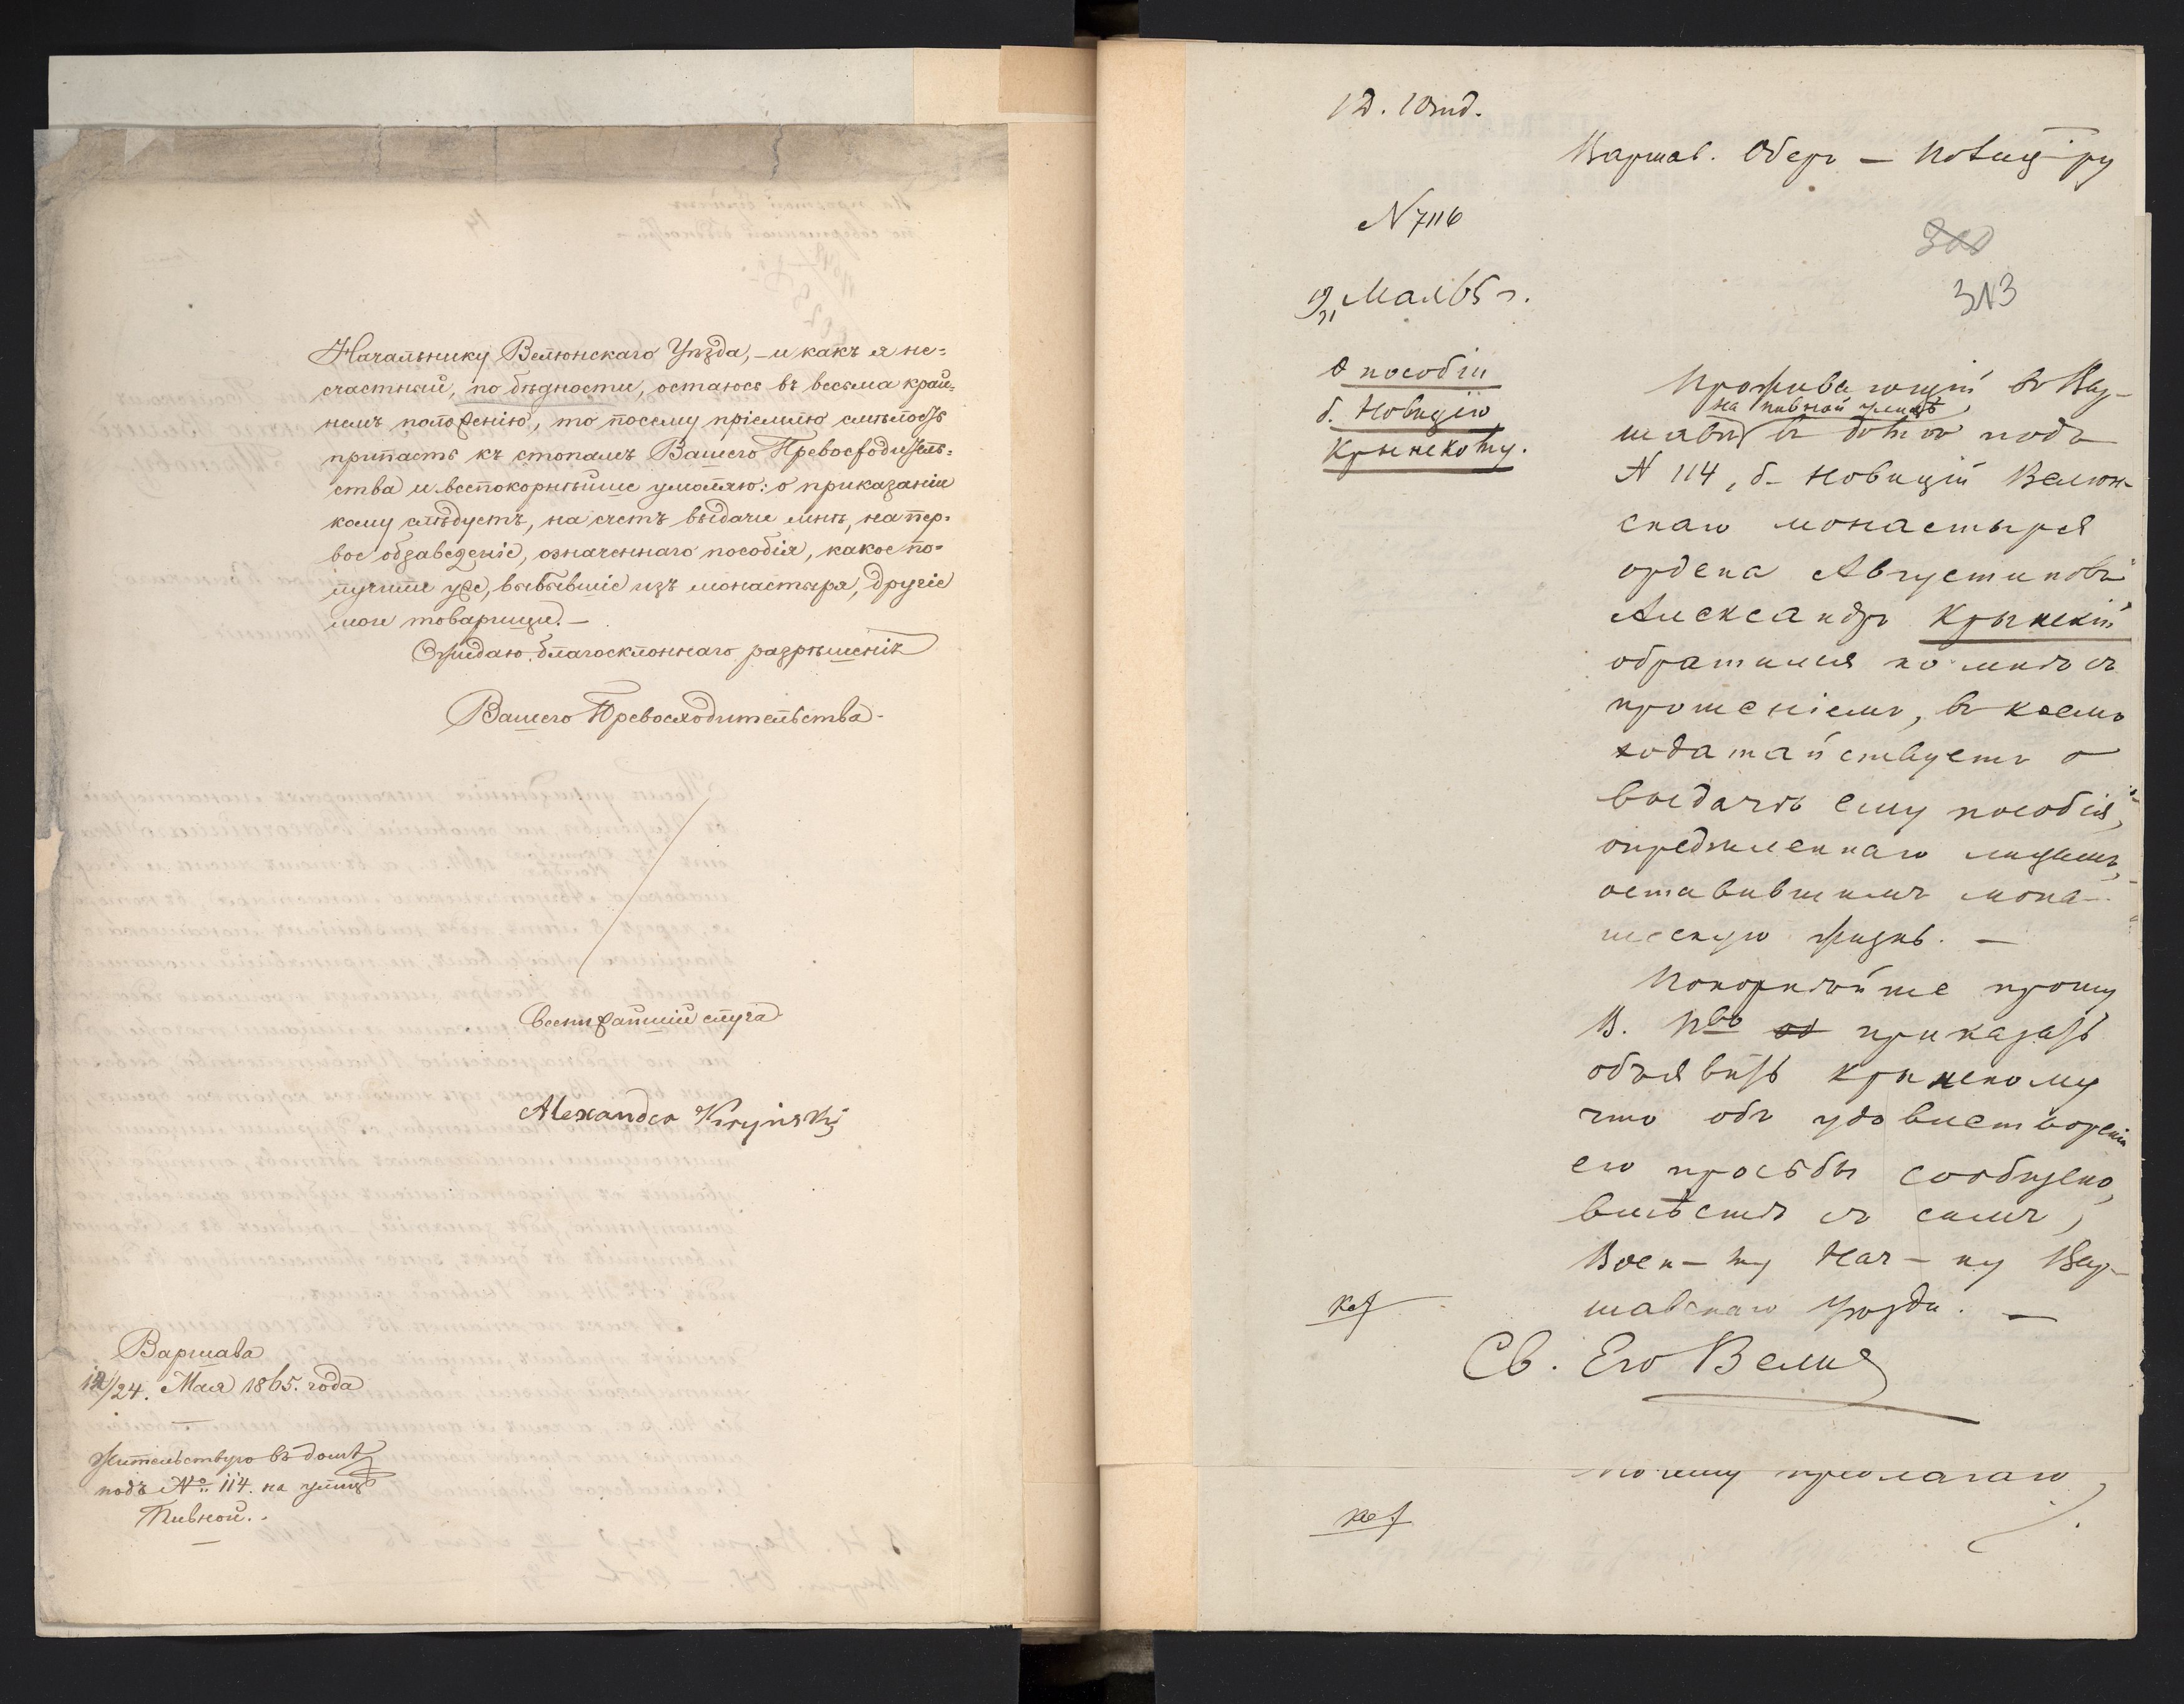 Начальнику Велюнскаго Уѣзда, – и какъ я не=
счастный, по бѣдности, остаюсь въ весьма край=
немъ положенію, то посему пріемлю смѣлость
припасть къ стопамъ Вашего Превосходитель=
ства и всепокорнѣйше умоляю: о приказаніи
кому слѣдуетъ, на счетъ выдачи мнѣ, на пер=
вое обзаведеніе, означеннаго пособія, какое по=
лучили уже, выбывшіе изъ монастыря, другіе
мои товарищи. –
Ожидаю благосклоннаго разрѣшенія
Вашего Превосходительства
всенижайшій слуга
Alexander Kryński
Варшава
12/24. Мая 1865. года
Жительствую въ домѣ
подъ №. 114. на улицѣ
Пивной.
1 Д. 1 Отд.
Варшав. Оберъ – Полиц–ру
N 7116
300
313
19/31 Мая 65 г.
О пособіи
б. Новицію
Крынскому.
Проживающій въ Вар-
на Пивной улицѣ
шавѣ въ домѣ подъ
N 114, б. Новицій Велюн-
скаго монастыря
ордена Августиновъ
Александръ Крынскій
обратился ко мнѣ съ
прошеніемъ, въ коемъ
ходатайствуетъ о
выдачѣ ему пособія,
опредѣленнаго лицамъ,
оставившимъ мона-
шескую жизнь. –
Покорнѣйше прошу
В. Пво приказать
объявить Крынскому
что объ удовлетвореніи
его просьбы сообщено,
вмѣстѣ съ симъ,
Воен–му Нач–ку Вар-
шавскаго Уѣзда. –
Св. Его Велич
предлагаю